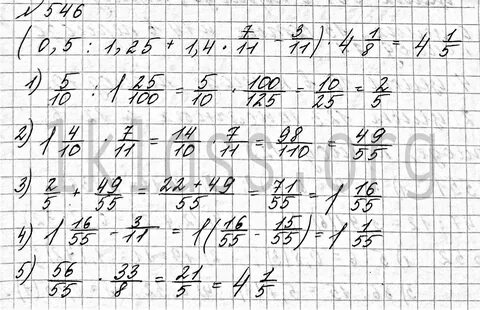 № 546
(0,5 : 1,25 + 1,4 · 7/11 - 3/11) · 4 1/8 = 4 1/5
1) 5/10 : 1 25/100 = 5/10 · 100/125 = 10/25 = 2/5
2) 1 4/10 · 7/11 = 14/10 · 7/11 = 98/110 = 49/55
3) 2/5 + 49/55 = 22+49/55 = 71/55 = 1 16/55
4) 1 16/55 - 3/11 = 1(16/55 - 15/55) = 1 1/55
5) 56/55 · 33/8 = 21/5 = 4 1/5
1klass.org